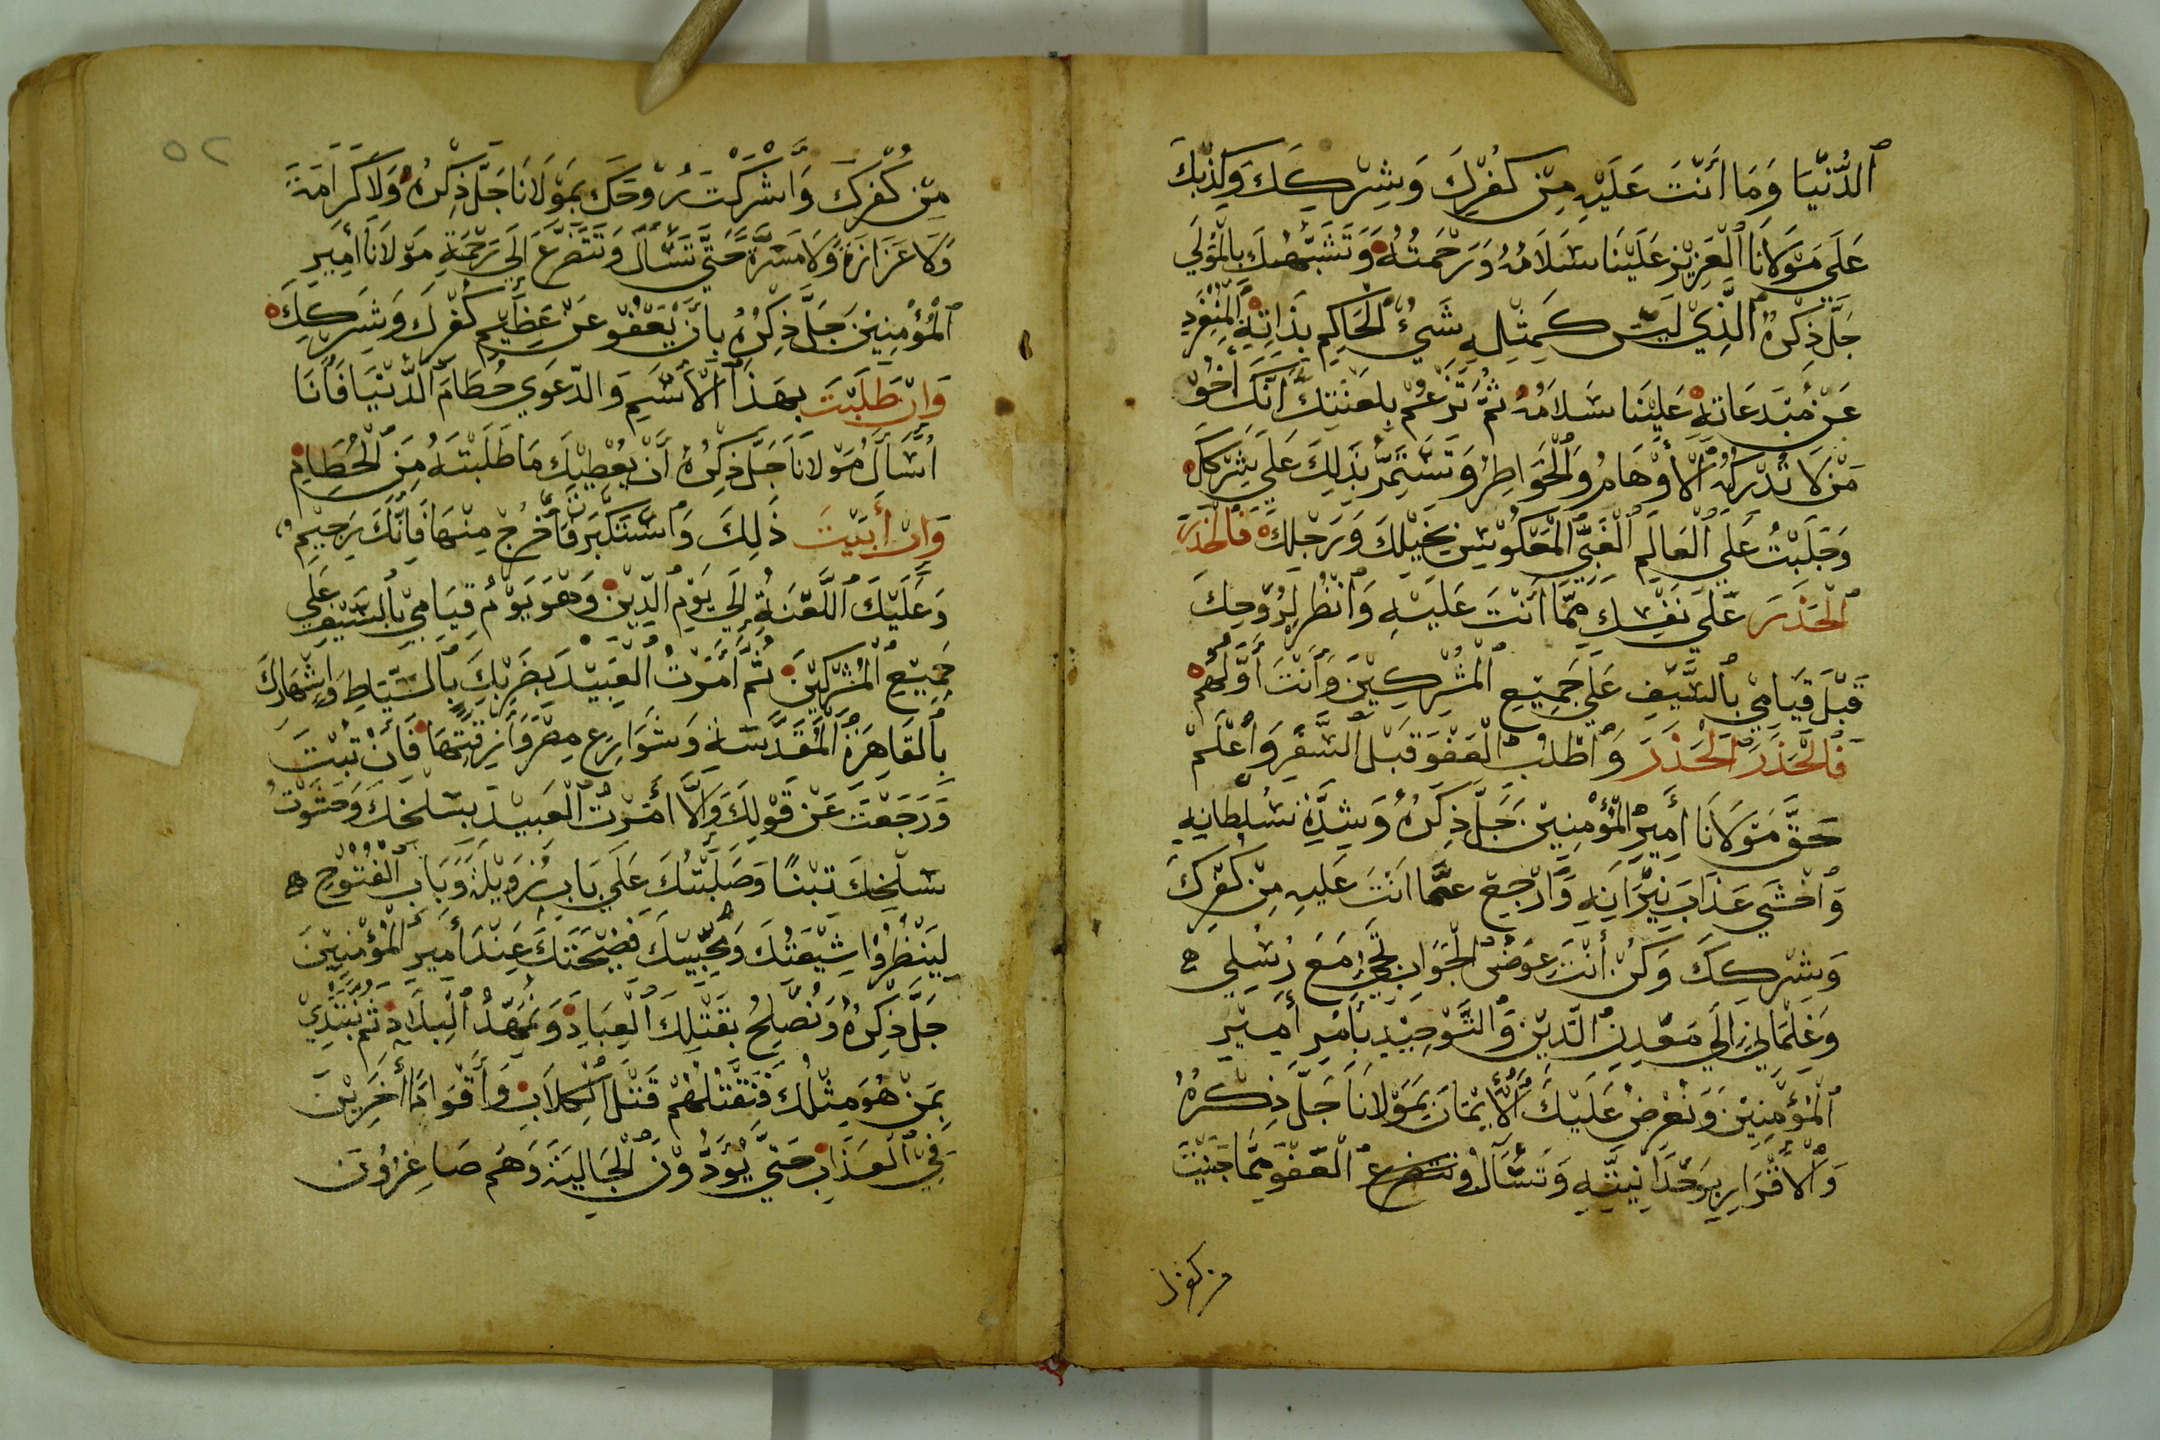 ٱلدُّنْيَا وَمَا أَنْتَ عَلَيْهِ مِنْ كُفْرِكَ وَشِرْكِكَ وَكِذْبِكَ
عَلَى مَوْلَانَا ٱلْعَزِيْزِ عَلَيْنَا سَلَامُهُ وَرَحْمَتُهُ وَتَشَبُّهِكَ بِالْمَوْلَى
جَلَّ ذِكْرُهُ ٱلَّذِيْ لَيْسَ كَمِثْلِهِ شَيْءٌ ٱلْحَاكِمِ بِذَاتِهِ ٱلْمُنْفَرِدِ
عَنْ مُبْدَعَاتِهِ عَلَيْنَا سَلَامُهُ ثُمَّ تَزْعُمُ بِلَعْنَتِكَ أَنَّكَ أَخُوْ
مَنْ لَا تُدْرِكُهُ ٱلْأَوْهَامُ وَٱلْخَوَاطِرُ وَتَسْتَمِرُّ بِذَلِكَ عَلَى شِرْكِكَ
وَجَلَبْتُ عَلَى ٱلْعَالَمِ ٱلْغَبِيِّ ٱلْمَعْكُوْسِيْنِ بِخَيْلِكَ وَرَجِلِكَ فَالْحَذَرَ
ٱلْحَذَرَ عَلَى نَفْسِكَ مِمَّا أَنْتَ عَلَيْهِ وَٱنْظُرْ لِرُوْحِكَ
قَبْلَ قِيَامِيْ بِٱلسَّيْفِ عَلَى جَمِيْعِ ٱلْمُشْرِكِيْنَ وَأَنْتَ أَوَّلُهُمْ
فَٱلْحَذَرَ ٱلْحَذَرَ وَٱطْلُبْ ٱلْعَفْوَ قَبْلَ ٱلسَّفَرِ وَٱعْلَمْ
حَقَّ مَوْلَانَا أَمِيْرِ ٱلْمُؤْمِنِيْنَ جَلَّ ذِكْرُهُ وَشِدَّةَ سُلْطَانِهِ
وَٱخْشَى عَذَابَ نِيْرَانِهِ وَٱرْجِعْ عَمَّا أَنْتَ عَلَيْهِ مِنْ كُفْرِكَ
وَشِرْكِكَ وَكُنْ أَنْتَ عِوَضَ ٱلْجَوَابِ تَجِيْ مَعَ رُسُلِي
وَغِلْمَانِيْ إِلَى مَعْدِنِ ٱلدِّيْنِ وَٱلتَّوْحِيْدِ بِأَمْرِ أَمِيْرِ
ٱلْمُؤْمِنِيْنَ وَنُعْرِضُ عَلَيْكَ ٱلْإِيْمَانَ بِمَوْلَانَا جَلَّ ذِكْرُهُ
وَٱلْأَقْرَارِ بِوَحْدَانِيَّتِهِ وَتَسْأَلُ وَتَتَضَرَّعُ ٱلْعَفْوَ مِمَّا جَنَيْتَ
من كفرك
٥٢
مِنْ كُفْرِكَ وَأَشْرَكْتَ رُوْحَكَ بِمَوْلَانَا جَلَّ ذِكْرُهُ وَلَا كَرَامَةً
وَلَا عَزَازَةً وَلَا مَسَرَّةً حَتَّى تَسْأَلَ وَتَتَضَرَّعَ إِلَى رَحْمَةِ مَوْلَانَا أَمِيرِ
ٱلْمُؤْمِنِيْنَ جَلَّ ذِكْرُهُ بِأَنْ يَعْفُوْ عَنْ عَظِيْمِ كُفْرِكَ وَشِرْكِكَ
وَإِنْ طَلَبْتَ بِهَذَا ٱلْأَسْمِ وَالدَّعْوَى حُطَامَ ٱلدُّنْيَا فَأَنَا
أَسْأَلُ مَوْلَانَا جَلَّ ذِكْرُهُ أَنْ يُعْطِيْكَ مَا طَلَبْتَهُ مِنَ ٱلْحُطَامِ
وَإِنْ أَبَيْتَ ذَلِكَ وَٱسْتَكْبَرْتَ فَٱخْرُجْ مِنْهَا فَإِنَّكَ رَجِيْمٌ
وَعَلَيْكَ ٱللَّعْنَةُ إِلَى يَوْمِ ٱلدِّيْنِ وَهُوَ يَوْمُ قِيَامِيْ بِٱلسَّيْفِ عَلَى
جَمِيْعِ ٱلْمُشْرِكِيْنَ ثُمَّ أَمَرْتُ ٱلْعَبِيْدَ بِضَرْبِكَ بِٱلسِّيَاطِ وَإِشْهَارِكَ
بِٱلْقَاهِرَةِ ٱلْمُقَدَّسَةِ وَشَوَارِعِ مِصْرَ وَأَزِقَّتِهَا فَإِنْ تُبْتَ
وَرَجَعْتَ عَنْ قَوْلِكَ وَإِلَّا أَمَرْتُ ٱلْعَبِيْدَ بِسَلْخِكَ وَحَشَوْتُ
سَلْخَكَ تِبْنًا وَصَلَبْتُكَ عَلَى بَابِ زُوَيْلَةَ وَبَابِ ٱلْفُتُوْحِ
لِيَنْظُرُوْا شِيْعَتُكَ وَمُحِبِّيْكَ فَضِيْحَتَكَ عِنْدَ أَمِيْرِ ٱلْمُؤْمِنِيْنَ
جَلَّ ذِكْرُهُ وَنُصْلِحُ بِقَتْلِكَ ٱلْعِبَادَ وَنُمَهِّدُ ٱلْبِلَادَ ثُمَّ نَبْتَدِيْ
بِمَنْ هُوَ مِثْلُكَ فَنَقْتُلُهُمْ قَتْلَ ٱلْكِلَابِ وَأَقْوَامًا أٰخَرِيْنَ
فِيْ ٱلْعَذَابِ حَتَّى يُؤَدُّوْنَ ٱلْجَالِيَةَ وَهُمْ صَاغِرُوْنَ